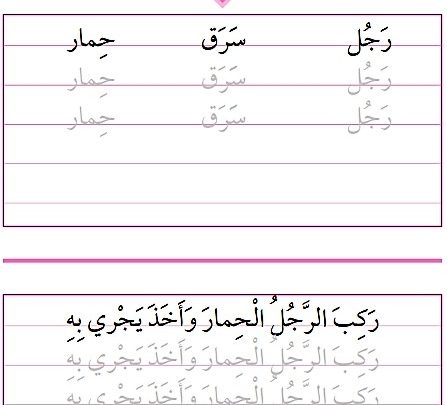 رَجُل سَرَق حِمار
رَجُل سَرَق حِمار
رَجُل سَرَق حِمار
رَكِبَ الرَّجُلُ الْحِمارَ وَأَخَذَ يَجْري بِهِ
رَكِبَ الرَّجُلُ الْحِمارَ وَأَخَذَ يَجْري بِهِ
رَكِبَ الرَّجُلُ الْحِمارَ وَأَخَذَ يَجْري بِهِ